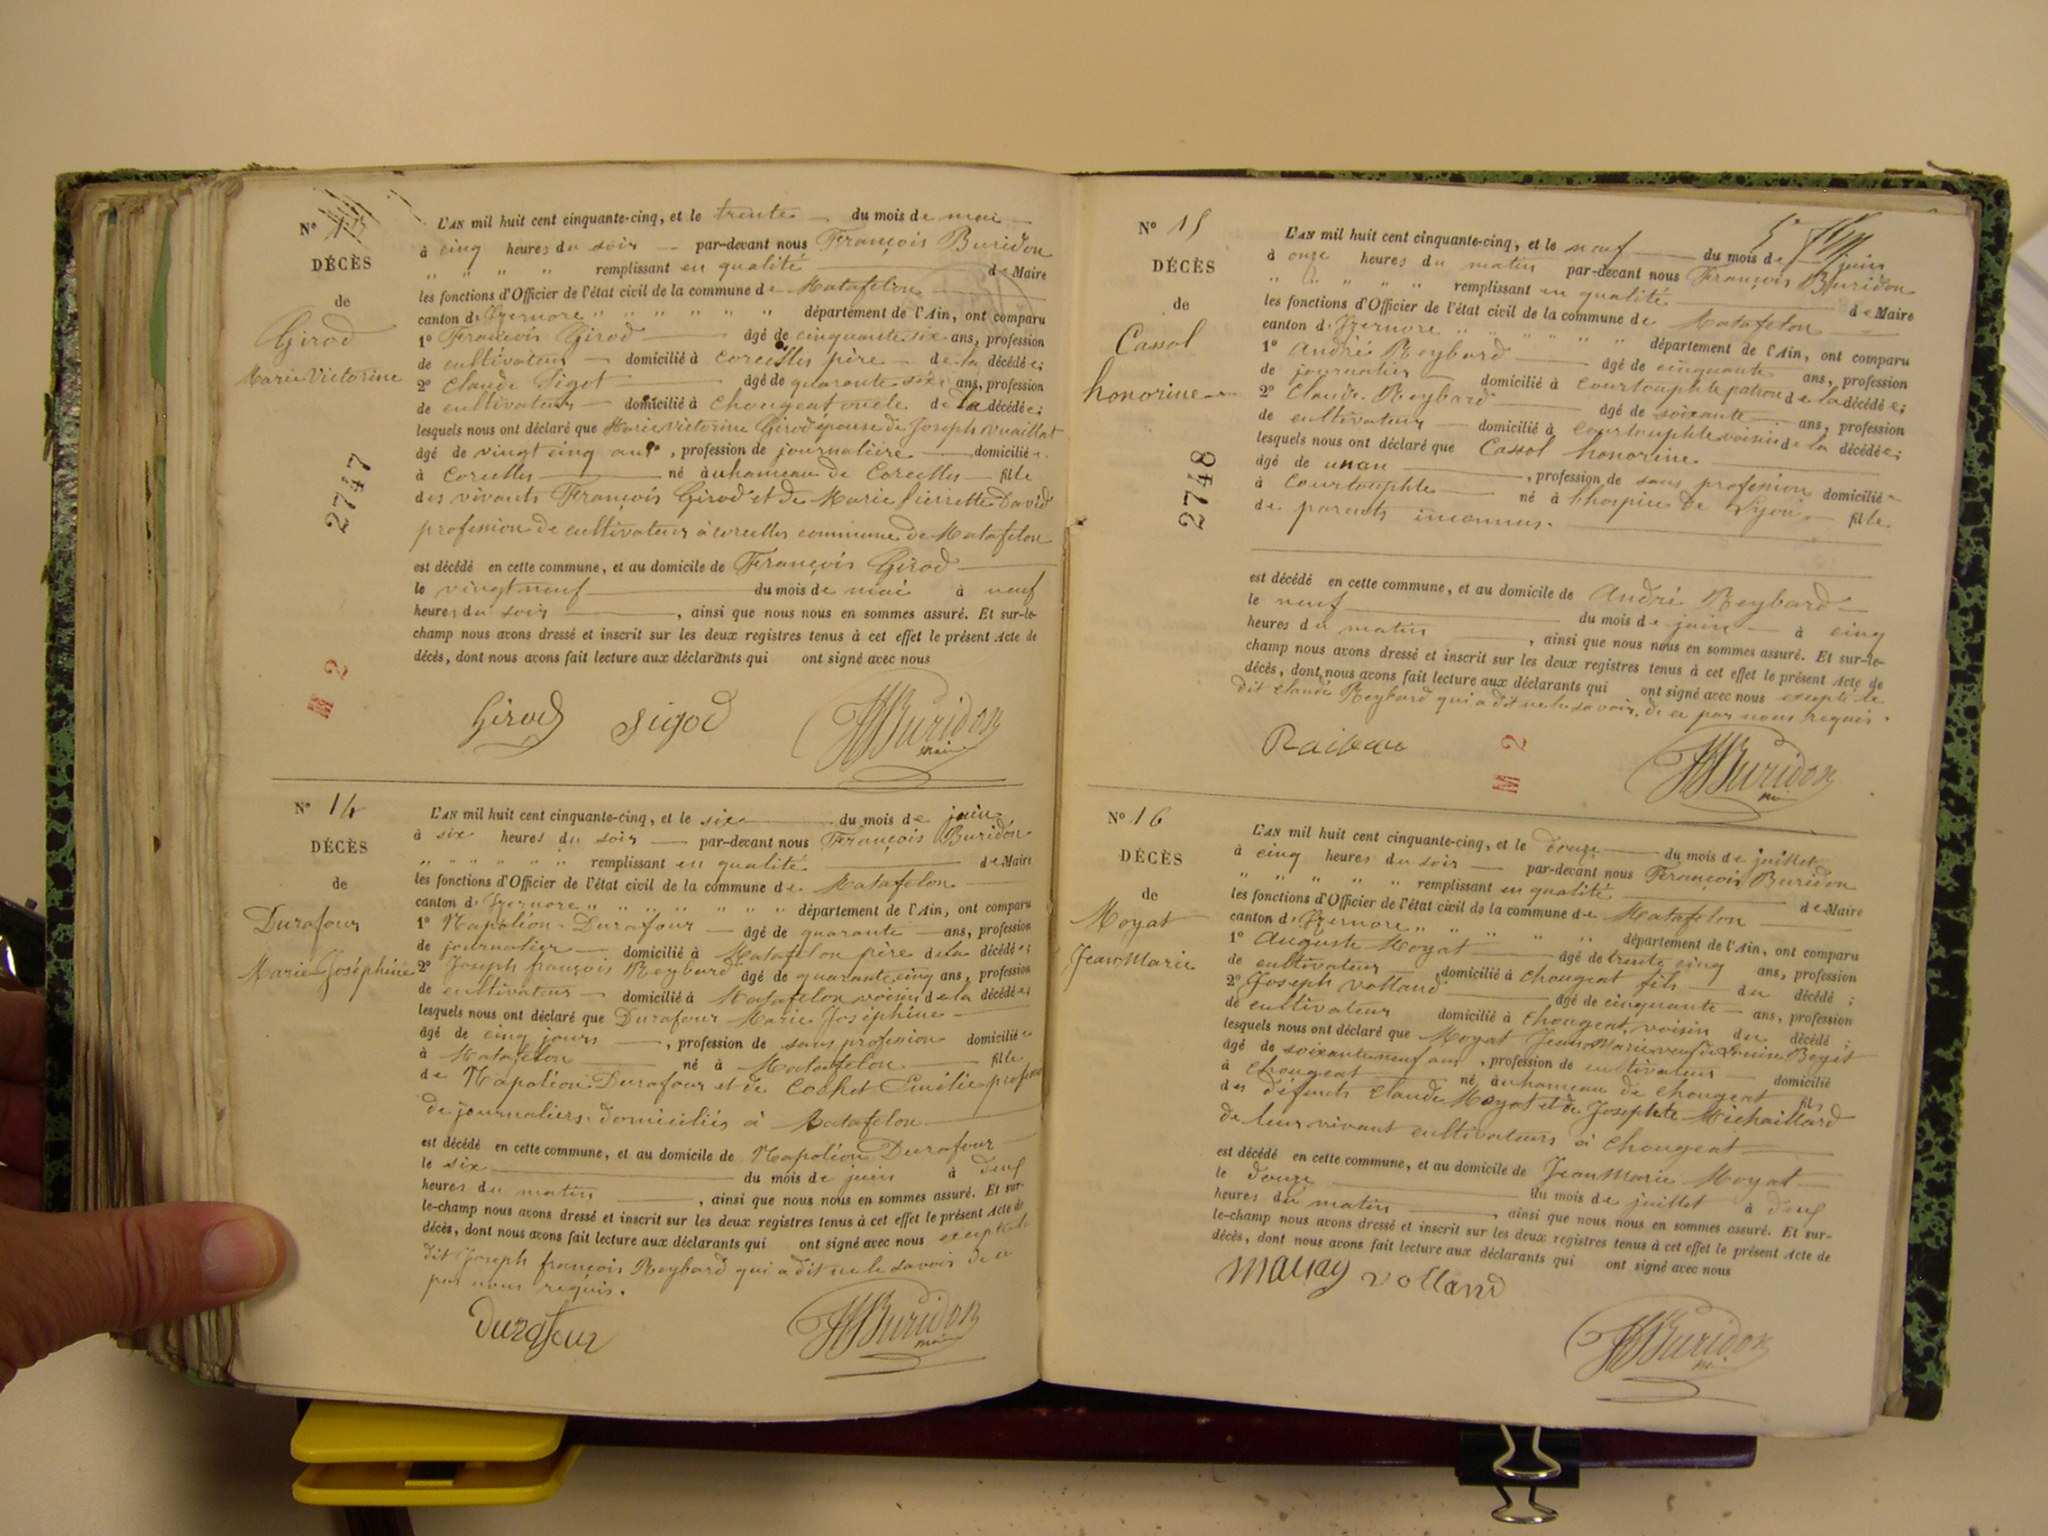 N° 13
DÉCÈS
de
Girod
Marie Victorine
2747
M 2
L'AN mil huit cent cinquante-cinq, et le trente du mois de mai
à cinq heures du soir par-devant nous François Buridon
" " " " remplissant en qualité de Maire
les fonctions d'Officier de l'état civil de la commune de Matafelon
canton d'Izernore " " " " " " département de l'Ain, ont comparu
1° François Girod âgé de cinquante six ans, profession
de cultivateur domicilié à corcelles père de la décédée;
2° Claude Sigot âgé de quarante six ans, profession
de cultivateur domicilié à Chougeat oncle de la décédée;
lesquels nous ont déclaré que Marie Victorine Girod épouse de Joseph Vuaillat
âgé de vingt cinq ans, profession de journalière domiciliée
à Corcelles né à u hameau de Corcelles fille
des vivants François Girod et de Marie Pierrette David
profession de cultivateurs à corcelles commune de Matafelon
est décédé en cette commune, et au domicile de François Girod
le vingt neuf du mois de mai à neuf
heures du soir, ainsi que nous nous en sommes assuré. Et sur-le-
champ nous avons dressé et inscrit sur les deux registres tenus à cet effet le présent Acte de
décès, dont nous avons fait lecture aux déclarants qui ont signé avec nous
Girod Sigod Buridon
maire
N° 14
DÉCÈS
de
Durafour
Marie Joséphine
L'AN mil huit cent cinquante-cinq, et le six du mois de juin
à six heures du soir par-devant nous François Buridon
" " " " " " remplissant en qualité de Maire
les fonctions d'Officier de l'état civil de la commune de Matafelon
canton d'Izernore " " " " " " département de l'Ain, ont comparu
1° Napoléon Durafour âgé de quarante ans, profession
de journalier domicilié à Matafelon père de la décédée;
2° Joseph françois Reybard âgé de quarante cinq ans, profession
de cultivateur domicilié à Matafelon voisin de la décédée;
lesquels nous ont déclaré que Durafour Marie Joséphine
âgé de cinq jours, profession de sans profession domiciliée
à Matafelon né à Matafelon fille
de Napoléon Durafour et de Cochet Emilie
de journaliers domiciliés à Matafelon
est décédé en cette commune, et au domicile de Napoléon Durafour
le six du mois de juin à deux
heures du matin, ainsi que nous nous en sommes assuré. Et sur-
le-champ nous avons dressé et inscrit sur les deux registres tenus à cet effet le présent Acte de
décès, dont nous avons fait lecture aux déclarants qui ont signé avec nous excepté le
dit Joseph françois Reybard qui a dit ne le savoir de ce
par nous requis.
Durafour Buridon
maire
N° 15
DÉCÈS
de
Cassol
honorine
2748
L'AN mil huit cent cinquante-cinq, et le neuf du mois de juin
à onze heures du matin par-devant nous François Buridon
" " " " " remplissant en qualité de Maire
les fonctions d'Officier de l'état civil de la commune de Matafelon
canton d'Izernore " " " " " département de l'Ain, ont comparu
1° André Reybard âgé de cinquante ans, profession
de journalier domicilié à Courtouphle patron de la décédée;
2° Claude Reybard âgé de soixante ans, profession
de cultivateur domicilié à Courtouphle voisin de la décédée;
lesquels nous ont déclaré que Cassol honorine
âgé de un an, profession de sans profession domiciliée
à Courtouphle né à l'hospice de Lyon fille
de parents inconnus.
est décédé en cette commune, et au domicile de André Reybard
le neuf du mois de juin à cinq
heures du matin, ainsi que nous nous en sommes assuré. Et sur-le-
champ nous avons dressé et inscrit sur les deux registres tenus à cet effet le présent Acte de
décès, dont nous avons fait lecture aux déclarants qui ont signé avec nous excepté le
dit Claude Reybard qui a dit ne le savoir, de ce par nous requis.
M 2
Buridon
N° 16
DÉCÈS
de
Moyat
Jean Marie
L'AN mil huit cent cinquante-cinq, et le douze du mois de juillet
à cinq heures du soir par-devant nous François Buridon
" " " " " remplissant en qualité de Maire
les fonctions d'Officier de l'état civil de la commune de Matafelon
canton d'Izernore " " " " " département de l'Ain, ont comparu
1° Auguste Moyat âgé de trente cinq ans, profession
de cultivateur domicilié à Chougeat fils du décédé;
2° Joseph Volland âgé de cinquante ans, profession
de cultivateur domicilié à Chougeat, voisin du décédé;
lesquels nous ont déclaré que Moyat Jean Marie veuf de Louise
âgé de soixante neuf ans, profession de cultivateur domicilié
à Chougeat né à u hameau de Chougeat fils
des défunts Claude Moyat et de Josephte Michaillard
de leur vivant cultivateurs à Chougeat
est décédé en cette commune, et au domicile de Jean Marie Moyat
le douze du mois de juillet à deux
heures du matin, ainsi que nous nous en sommes assuré. Et sur-
le-champ nous avons dressé et inscrit sur les deux registres tenus à cet effet le présent Acte de
décès, dont nous avons fait lecture aux déclarants qui ont signé avec nous
volland
Buridon